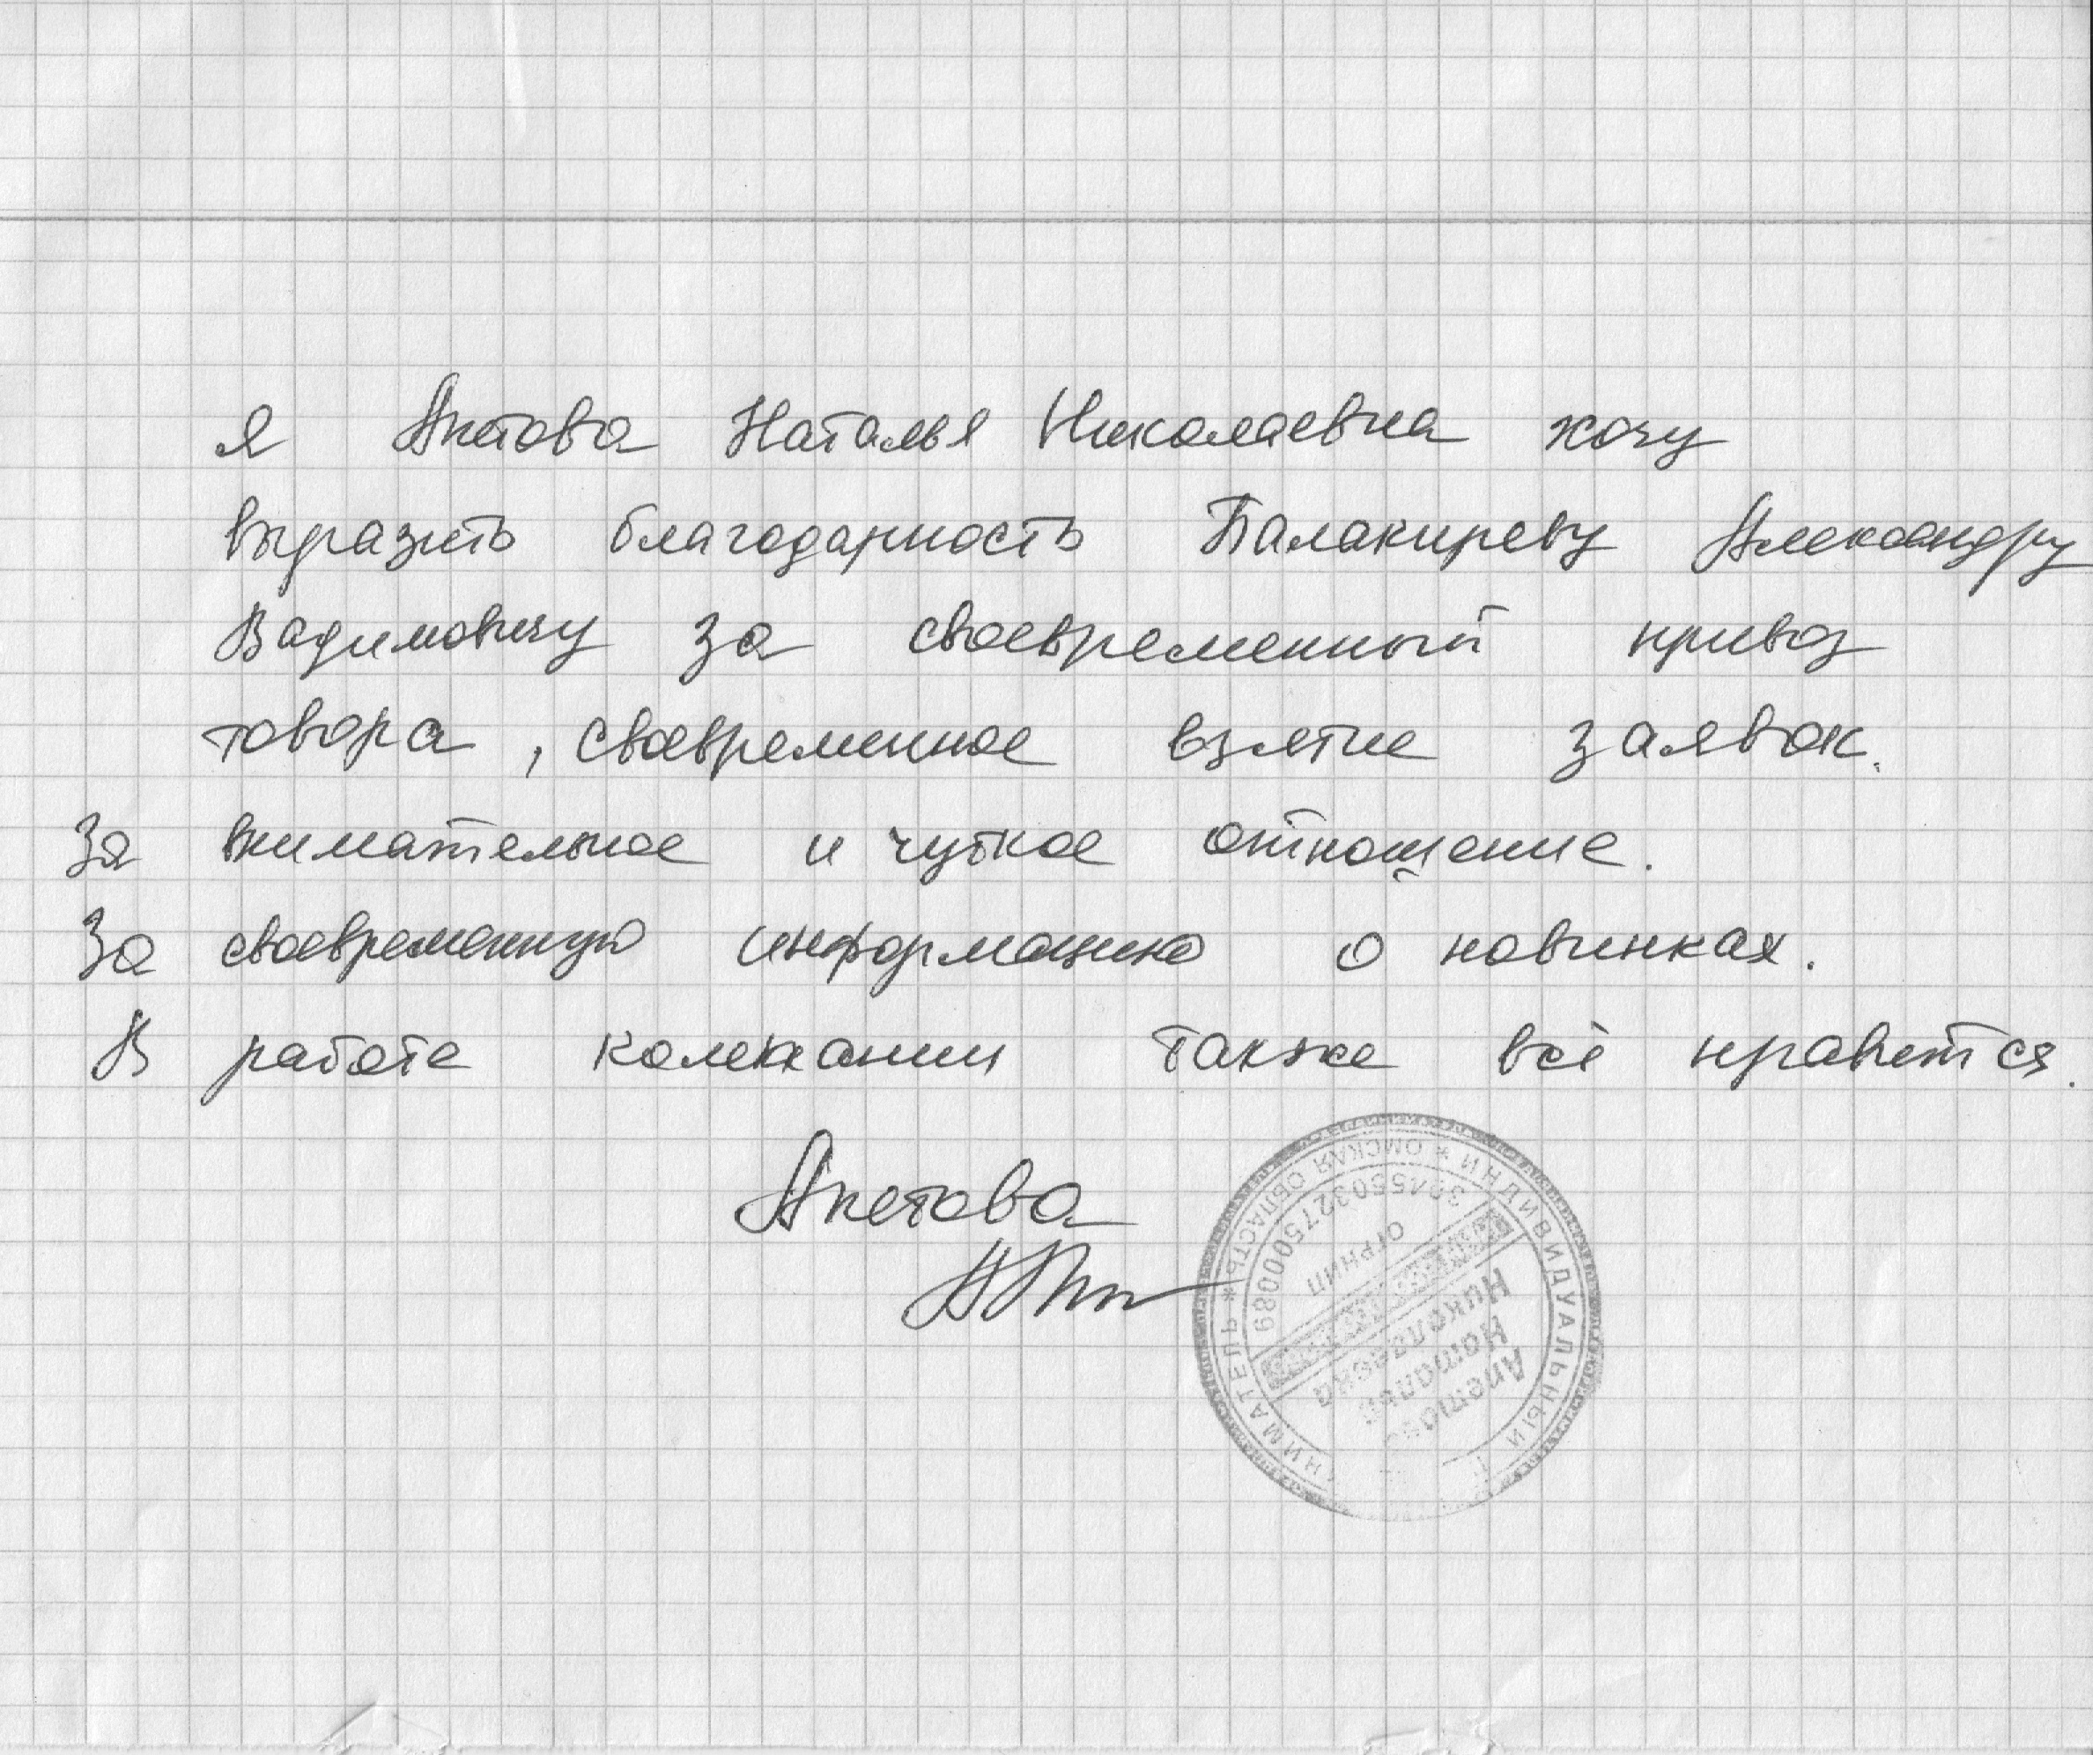 Я Апетова Наталья Николаевна хочу
выразить благодарность Балакиреву Александру
Вадимовичу за своевременный привоз
товара, своевременное взятие заявок.
За внимательное и чуткое отношение.
За своевременную информацию о новинках.
В работе компании также всё нравится.
Апетова
ИНДИВИДУАЛЬНЫЙ
* ОМСКАЯ ОБЛАСТЬ *
ОГРНИП
Апетова
Наталья
Николаевна